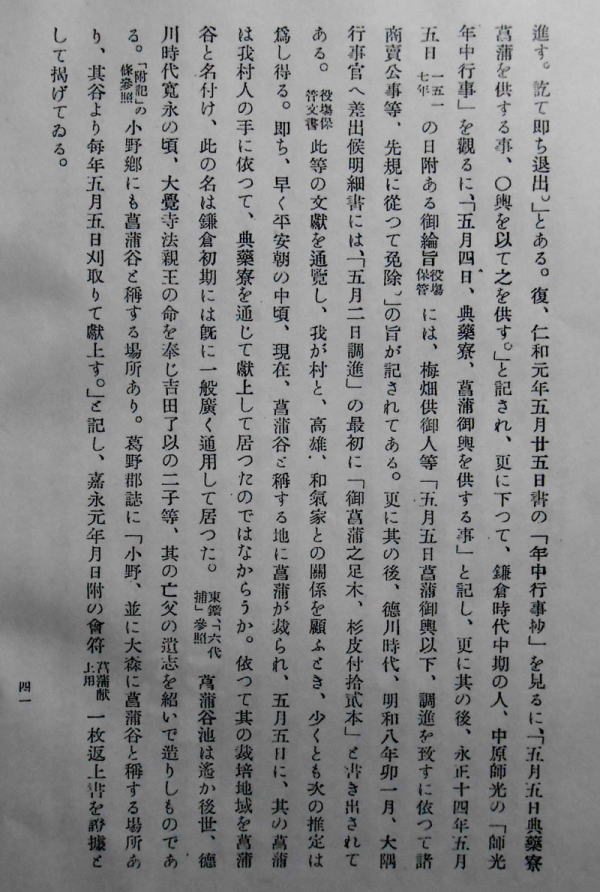 進す。訖て即ち退出。」とある。復、仁和元年五月廿五日書の「年中行事抄」を見るに、「五月五日典藥寮
菖蒲を供する事、〇輿を以て之を供す。」と記され、更に下つて、鎌倉時代中期の人、中原師光の「師光
年中行事」を觀るに、「五月四日、典藥寮、菖蒲御輿を供する事」と記し、更に其の後、永正十四年五月
五日一五一七年の日附ある御綸旨役場保管には、梅畑供御人等「五月五日菖蒲御輿以下、調進を致すに依つて諸
商賣公事等、先規に從つて免除。」の旨が記されてある。更に其の後、德川時代、明和八年卯一月、大隅
行事官へ差出候明細書には、「五月二日調進」の最初に「御菖蒲之足木、杉皮付拾貳本」と書き出されて
ある。役場保管文書此等の文獻を通覽し、我が村と、高雄、和氣家との關係を顧ふとき、少くとも次の推定は
爲し得る。即ち、早く平安朝の中頃、現在、菖蒲谷と稱する地に菖蒲が栽られ、五月五日に、其の菖蒲
は我村人の手に依つて、典藥寮を通じて獻上して居つたのではなからうか。依つて其の栽培地域を菖蒲
谷と名付け、此の名は鎌倉初期には旣に一般廣く通用して居つた。東鑑「六代捕」參照菖蒲谷池は遙か後世、德
川時代寬永の頃、大覺寺法親王の命を奉じ吉田了以の二子等、其の亡父の遺志を紹いで造りしものであ
る。「附記」の條參照小野鄕にも菖蒲谷と稱する場所あり。葛野郡誌に「小野、並に大森に菖蒲谷と稱する場所あ
り、其谷より每年五月五日刈取りて獻上す。」と記し、嘉永元年月日附の會符菖蒲献上用一枚返上書を證據と
して揭げてゐる。
四一